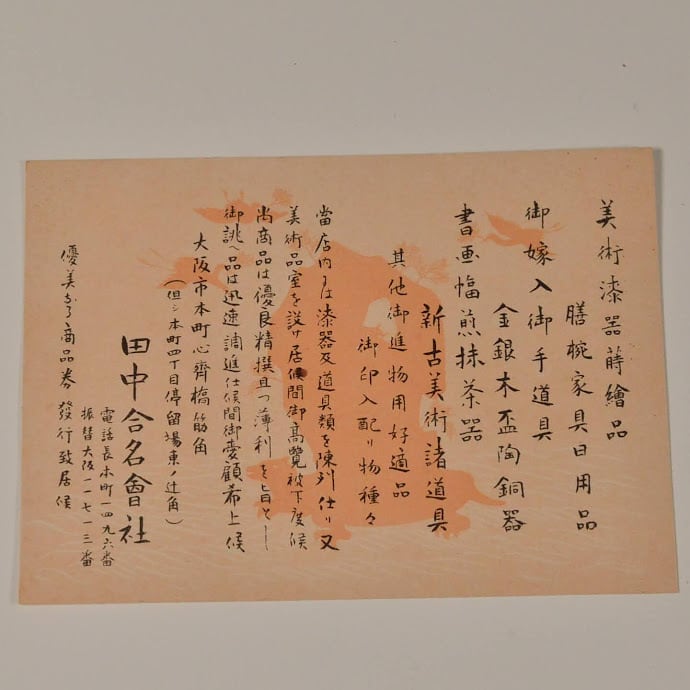 美術漆器蒔繪品
膳椀家具日用品
御嫁入御手道具
金銀木盃陶銅器
書画幅煎抹茶器
新古美術諸道具
其他御進物用好適品
御印入配り物種々
當店内には漆器及道具類を陳列仕り又
美術品室を設け居候間御高覽被下度候
尚商品は優良精撰且つ薄利を旨とし
御誂へ品は迅速調進仕候間御愛顧希上候
大阪市本町心齊橋筋角
(但シ本町四丁目停留場東ノ辻角)
田中合名會社
電話長本町一四九六番
振替大阪一一七一三番
優美なる商品券發行致居候